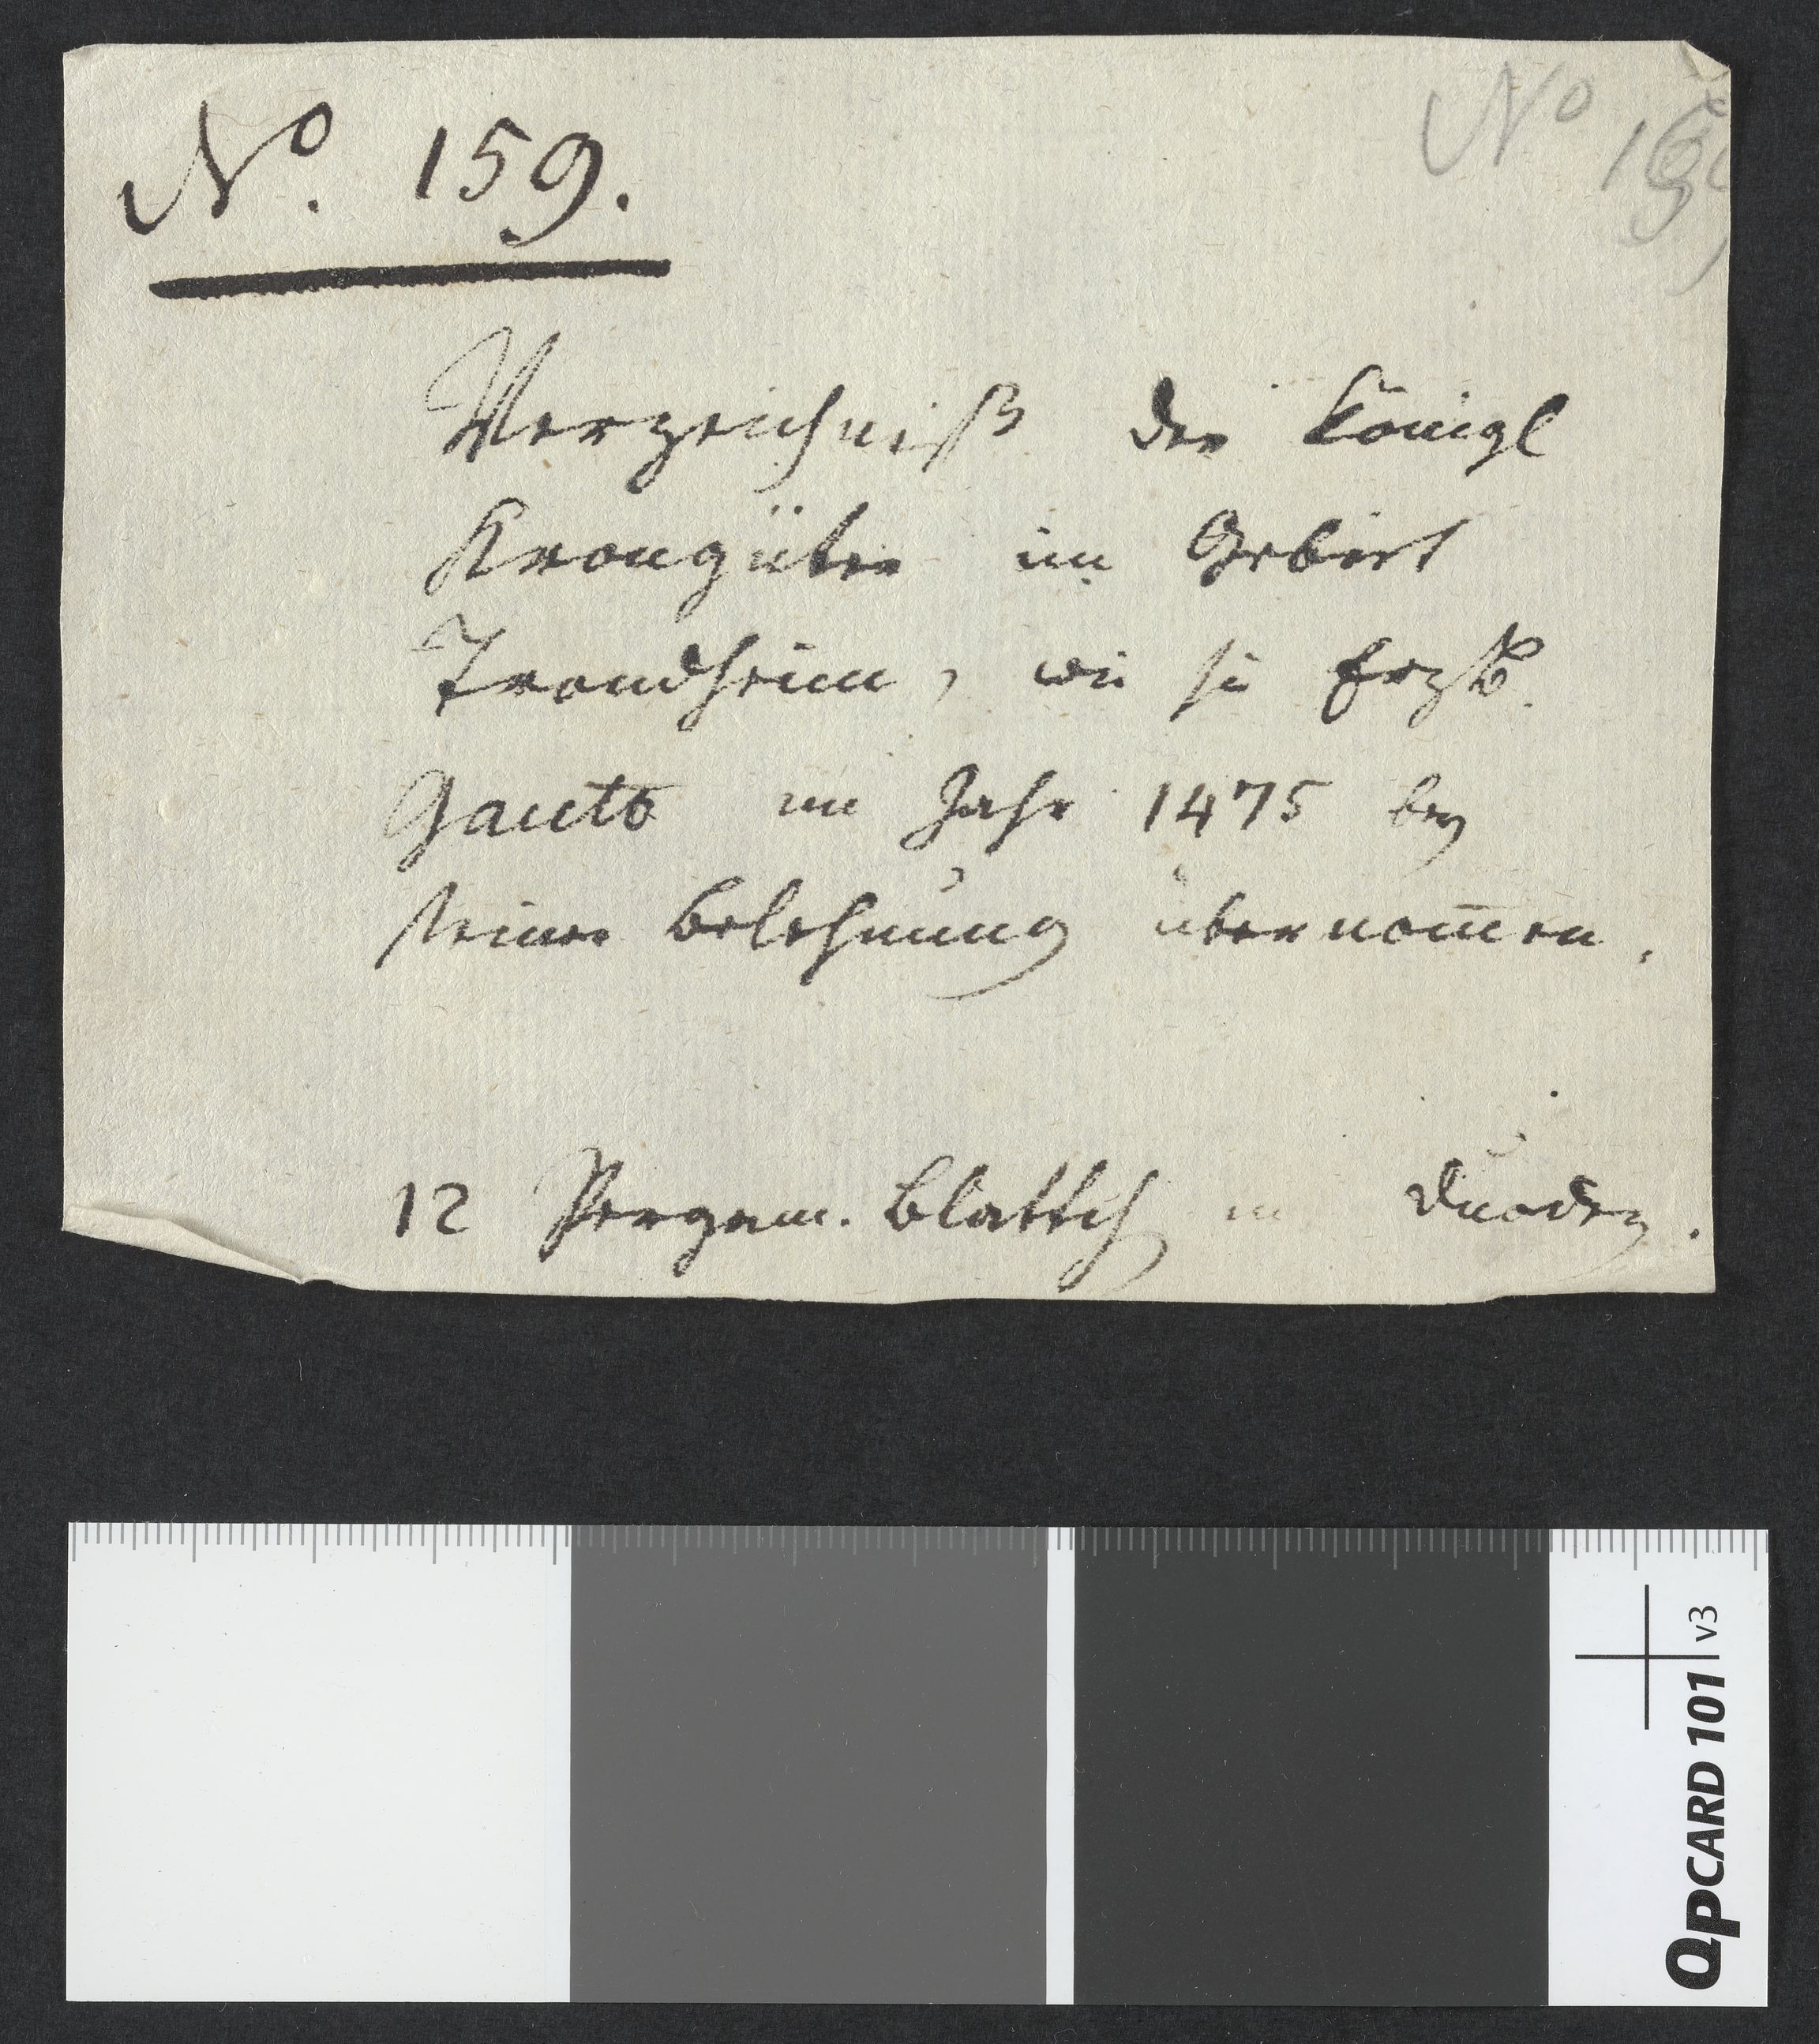 No. 159.
No
Verzeichniß der Königl
Krongüter im Gebiet
Trondheim, wie sie Erzb.
Gauto im Jahr 1475 bey
seiner Belehnung übernom̄en.
12 Pergam. Blättch in Duodez.
QPCARD 101 v3